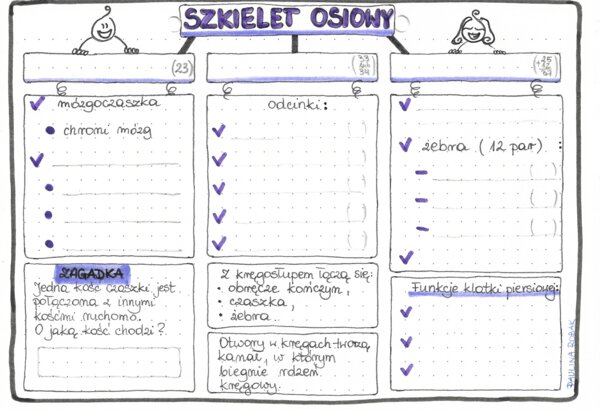 SZKIELET OSIOWY
(23)
33
lub
34
25
37
mózgoczaszka
chroni mózg
odcinki:
( )
( )
( )
( )
( )
żebra (12 par) :
( )
( )
( )
ZAGADKA
Jedna kość czaszki jest
połączona z innymi
kośćmi ruchomo.
O jaką kość chodzi?
Z kręgosłupem łączą się:
obręcze kończyn,
czaszka,
żebra.
Otwory w kręgach tworzą
kanał, w którym
biegnie rdzeń
kręgowy.
Funkcje klatki piersiowej:
PAULINA ROBAK